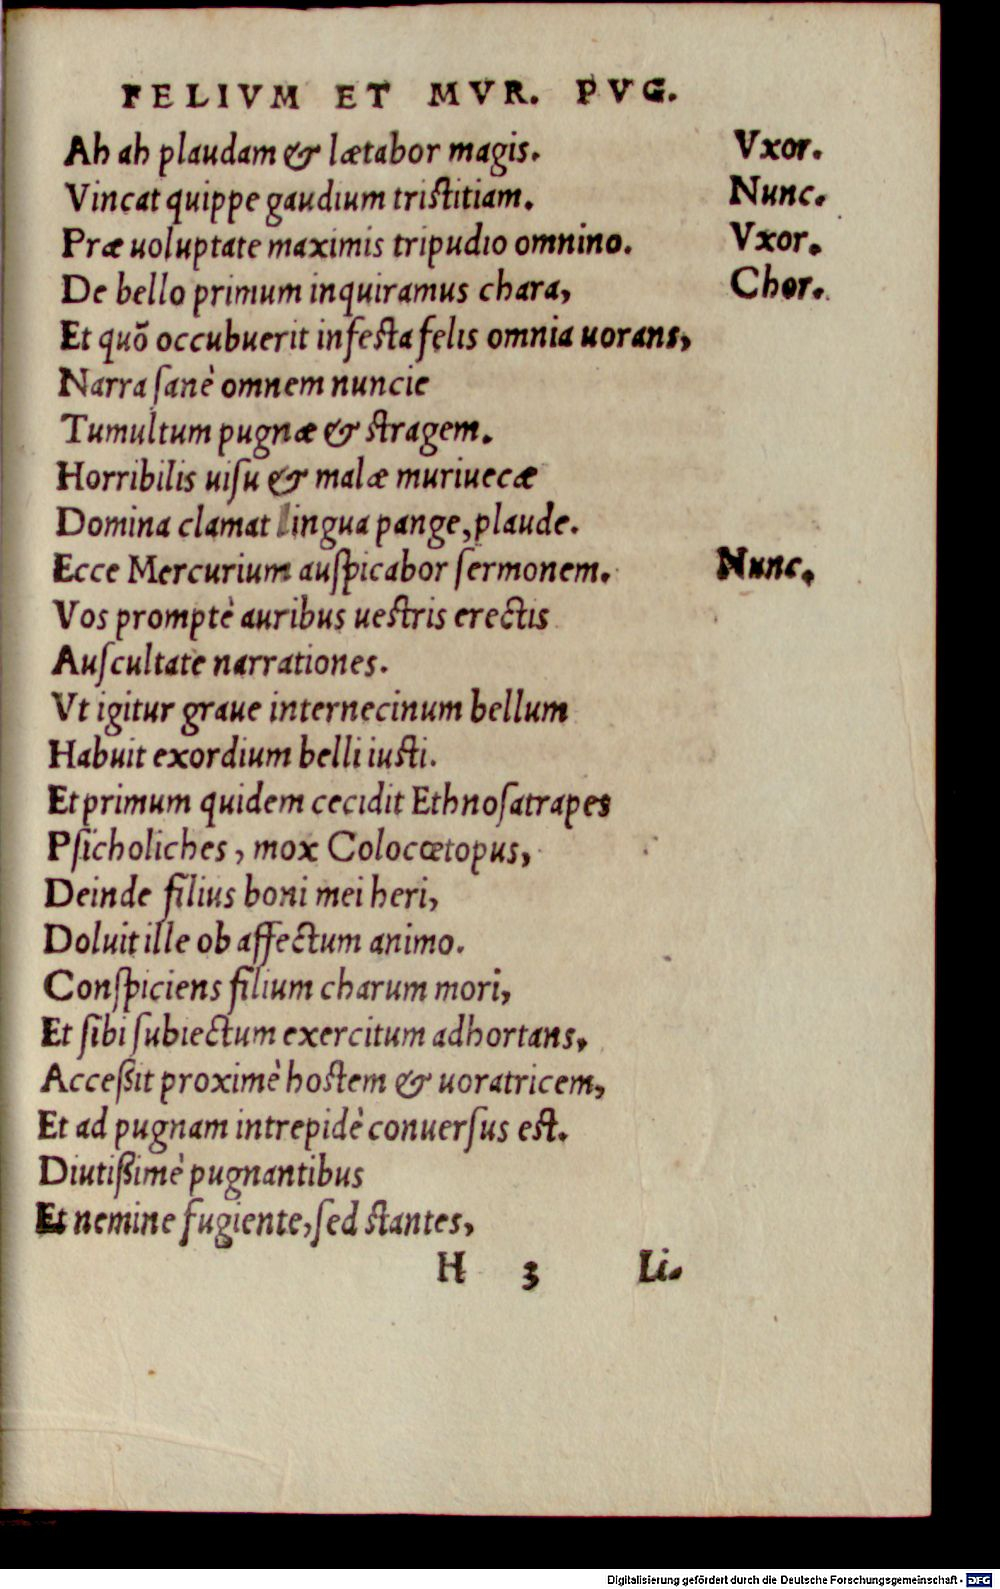 FELIVM ET MVR. PVG.
Ah ah plaudam & lætabor magis. Vxor.
Vincat quippe gaudium tristitiam. Nunc.
Præ uoluptate maximis tripudio omnino. Vxor.
De bello primum inquiramus chara, Chor.
Et quõ occubuerit infesta felis omnia uorans,
Narra sanè omnem nuncie
Tumultum pugnæ & stragem.
Horribilis uisu & malæ muriuecæ
Domina clamat lingua pange, plaude.
Ecce Mercurium auspicabor sermonem. Nunc.
Vos promptè auribus uestris erectis
Auscultate narrationes.
Vt igitur graue internecinum bellum
Habuit exordium belli iusti.
Et primum quidem cecidit Ethnosatrapes
Psicholiches, mox Colocœtopus,
Deinde filius boni mei heri,
Doluit ille ob affectum animo.
Conspiciens filium charum mori,
Et sibi subiectum exercitum adhortans,
Acceßit proximè hostem & uoratricem,
Et ad pugnam intrepidè conuersus est.
Diutißimè pugnantibus
Et nemine fugiente, sed stantes,
H 3 Li.
Digitalisierung gefördert durch die Deutsche Forschungsgemeinschaft - DFG